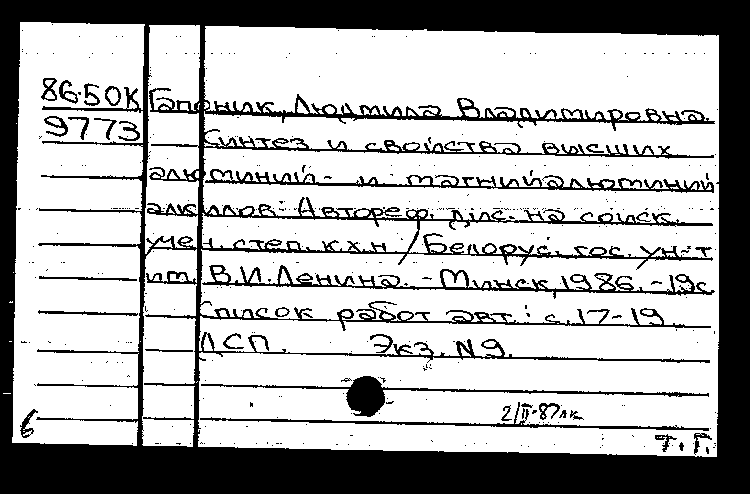 86-50К Гапоник, Людмила Владимировна.
9773 Синтез и свойства высших
алюминий- и магнийалюминий-
алкилов: Автореф. дис. на соиск.
учен. степ. к.х.н. / Белорус. гос. ун-т
им. В.И.Ленина. - Минск, 1986. - 19с.
Список работ авт.: с.17-19.
ДСП. Экз. N9.
2/II-87лк
6
Т.Г.